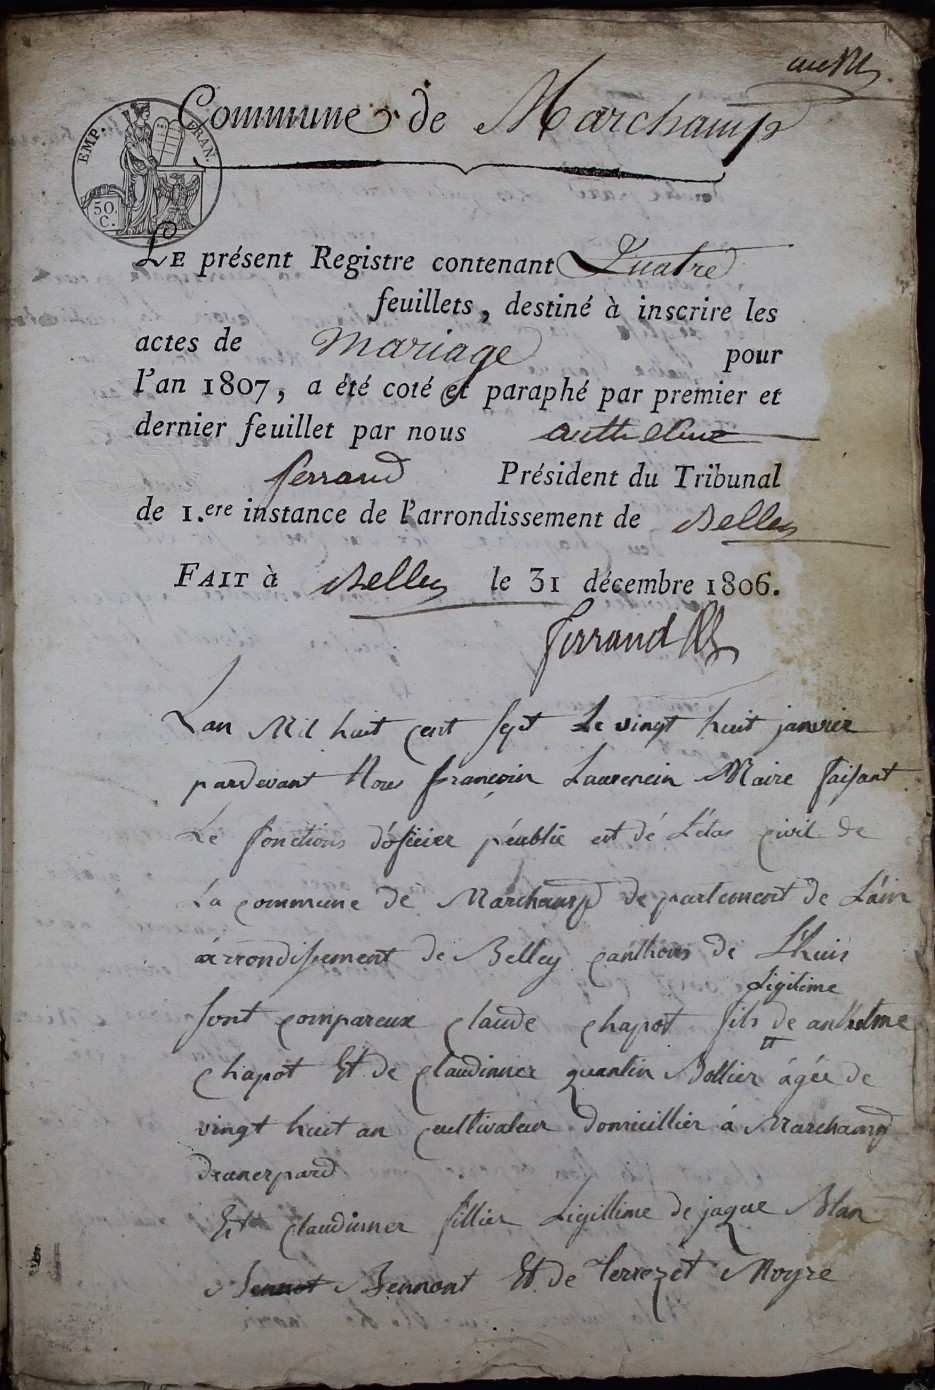 Commune de Marchamp
EMP. FRAN.
50.
C.
LE présent Registre contenant Quatre
feuillets, destiné à inscrire les
actes de mariage pour
l'an 1807, a été coté et paraphé par premier et
dernier feuillet par nous anthelme
ferrand Président du Tribunal
de 1.ere instance de l'arrondissement de Belley
FAIT à Belley le 31 décembre 1806.
ferrand
Lan Mil huit cent sept Le vingt huit janvier
pardevant Nous françois Laurencin Maire faisant
Le fonctions d'óficier péublic et dé L'étas civil de
La commune de Marchamp departement de L'ain
árrondissement de Belley canthons de L'huis
Ligitime
sont compareux claude chapot fils de anthelme
chapot Et de claudinner quantin Bollier ágée de
vingt huit an cultivateur domicillier á Marchamp
d'unerpard
Et claudinner fillier Ligillime de jaque Blan
Bennont Et de Terrezet Moyre